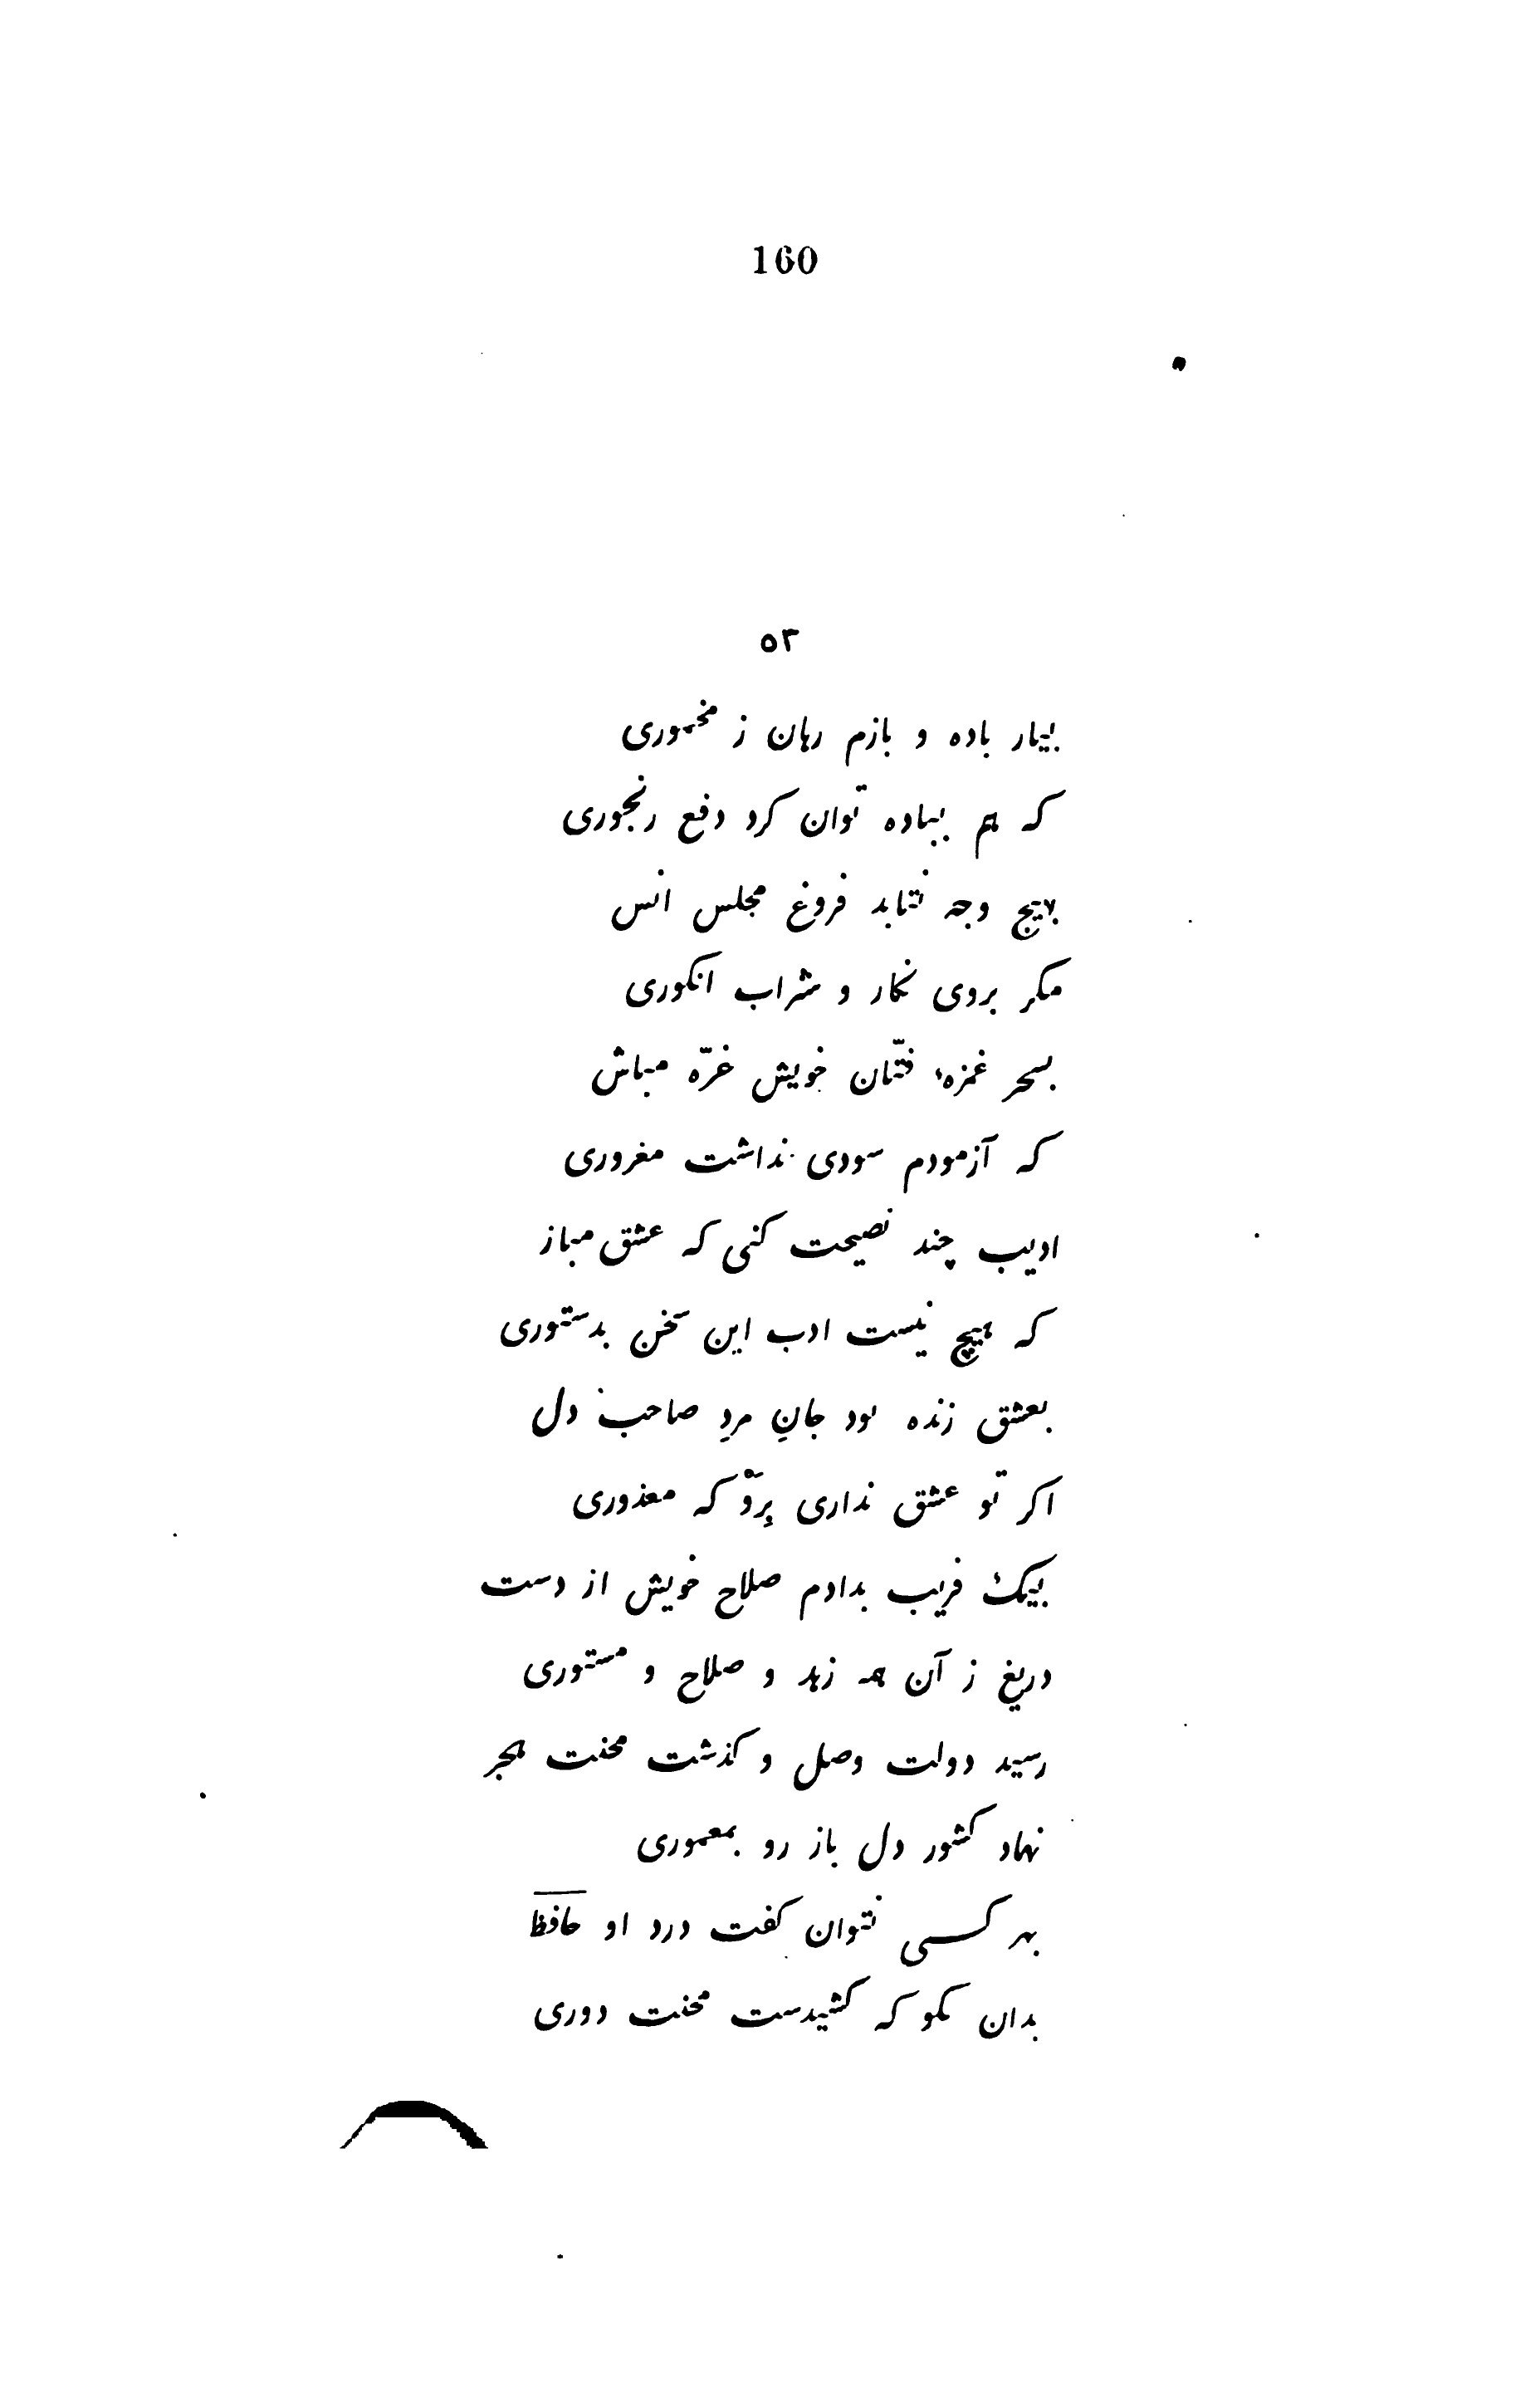 160
٥٣
بیار باده و بازم رهان ز مخموری
که هم بباده توان کرد دفع رنجوری
بهیچ وجه نتابد فروغ مجلس انس
مکر بروی نکار و شراب انکوری
بسحر غمزهٔ فتّان خویش غرّه مباش
که آزمودم سودی نداشت مغروری
ادیب چند نصیحت کنی که عشق مباز
که هیچ نیست ادب این سخن بدستوری
بعشق زنده بود جانِ مردِ صاحب دل
اکر تو عشق نداری بِرَوْ که معذوری
بیک فریب بدادم صلاح خویش از دست
دریغ ز آن همه زهد و صلاح و مستوری
رسید دولت وصل و کذشت محنت هجر
نهاد کشور دل باز رو بمعموری
بهر کسی نتوان کفت درد او حافظ
بدان بکو که کشیدست محنت دوری